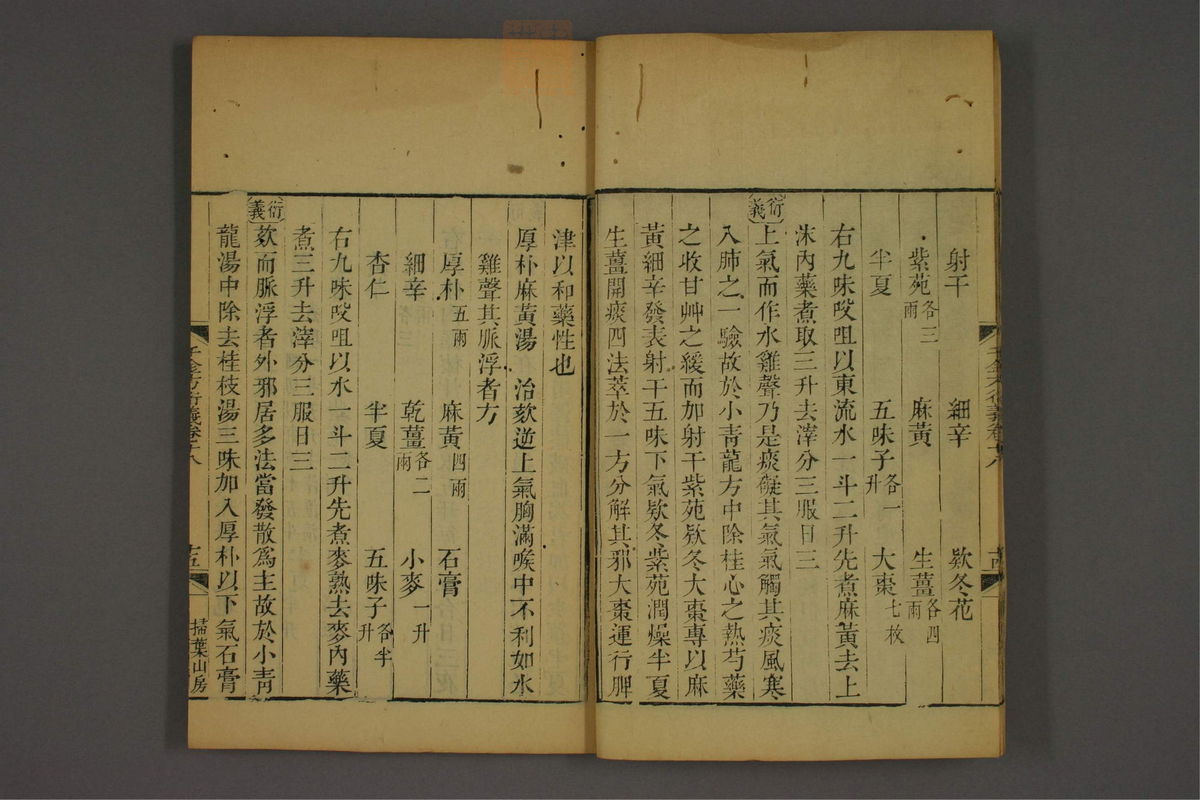 射干　細辛　欵冬花
紫苑各三兩　麻黃　生薑各四兩
半夏　五味子各一升　大棗七枚
右九味㕮咀以東流水一斗二升先煮麻黃去上
沫內藥煮取三升去滓分三服日三
衍義
上氣而作水雞聲乃是痰礙其氣氣觸其痰風寒
入肺之一驗故於小青龍方中除桂心之熱芍藥
之收甘艸之緩而加射干紫苑欵冬大棗專以麻
黃細辛發表射干五味下氣欵冬紫苑潤燥半夏
生薑開痰四法萃於一方分解其邪大棗運行脾
千金方衍義卷十八
十四
津以和藥性也
厚朴麻黃湯　治欬逆上氣胸滿喉中不利如水
雞聲其脈浮者方
厚朴五兩　麻黃四兩　石膏
細辛　乾薑各二兩　小麥一升
杏仁　半夏　五味子各半升
右九味㕮咀以水一斗二升先煮麥熟去麥內藥
煮三升去滓分三服日三
衍義
欬而脈浮者外邪居多法當發散爲主故於小靑
龍湯中除去桂枝湯三味加入厚朴以下氣石膏
千金方衍義卷十八
十五
掃葉山房